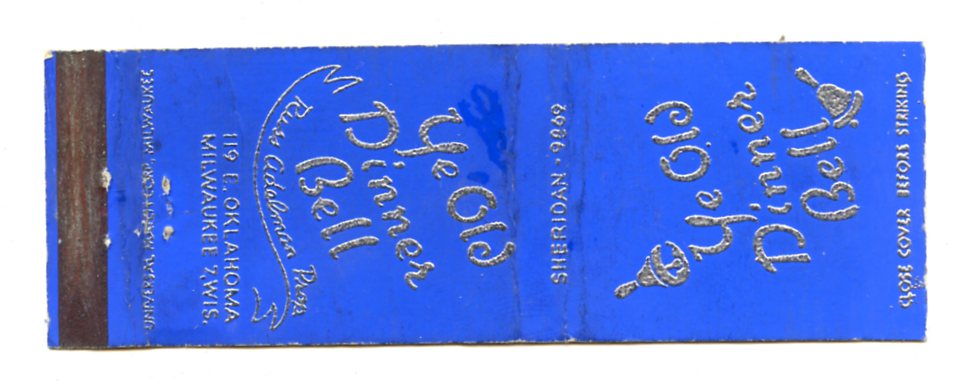 CLOSE COVER BEFORE STRIKING
Ye Old
Dinner
Bell
SHERIDAN - 9866
Ye Old
Dinner
Bell
Russ Adalman Prop.
119 E. OKLAHOMA
MILWAUKEE 7, WIS.
UNIVERSAL MATCH CORP., MILWAUKEE